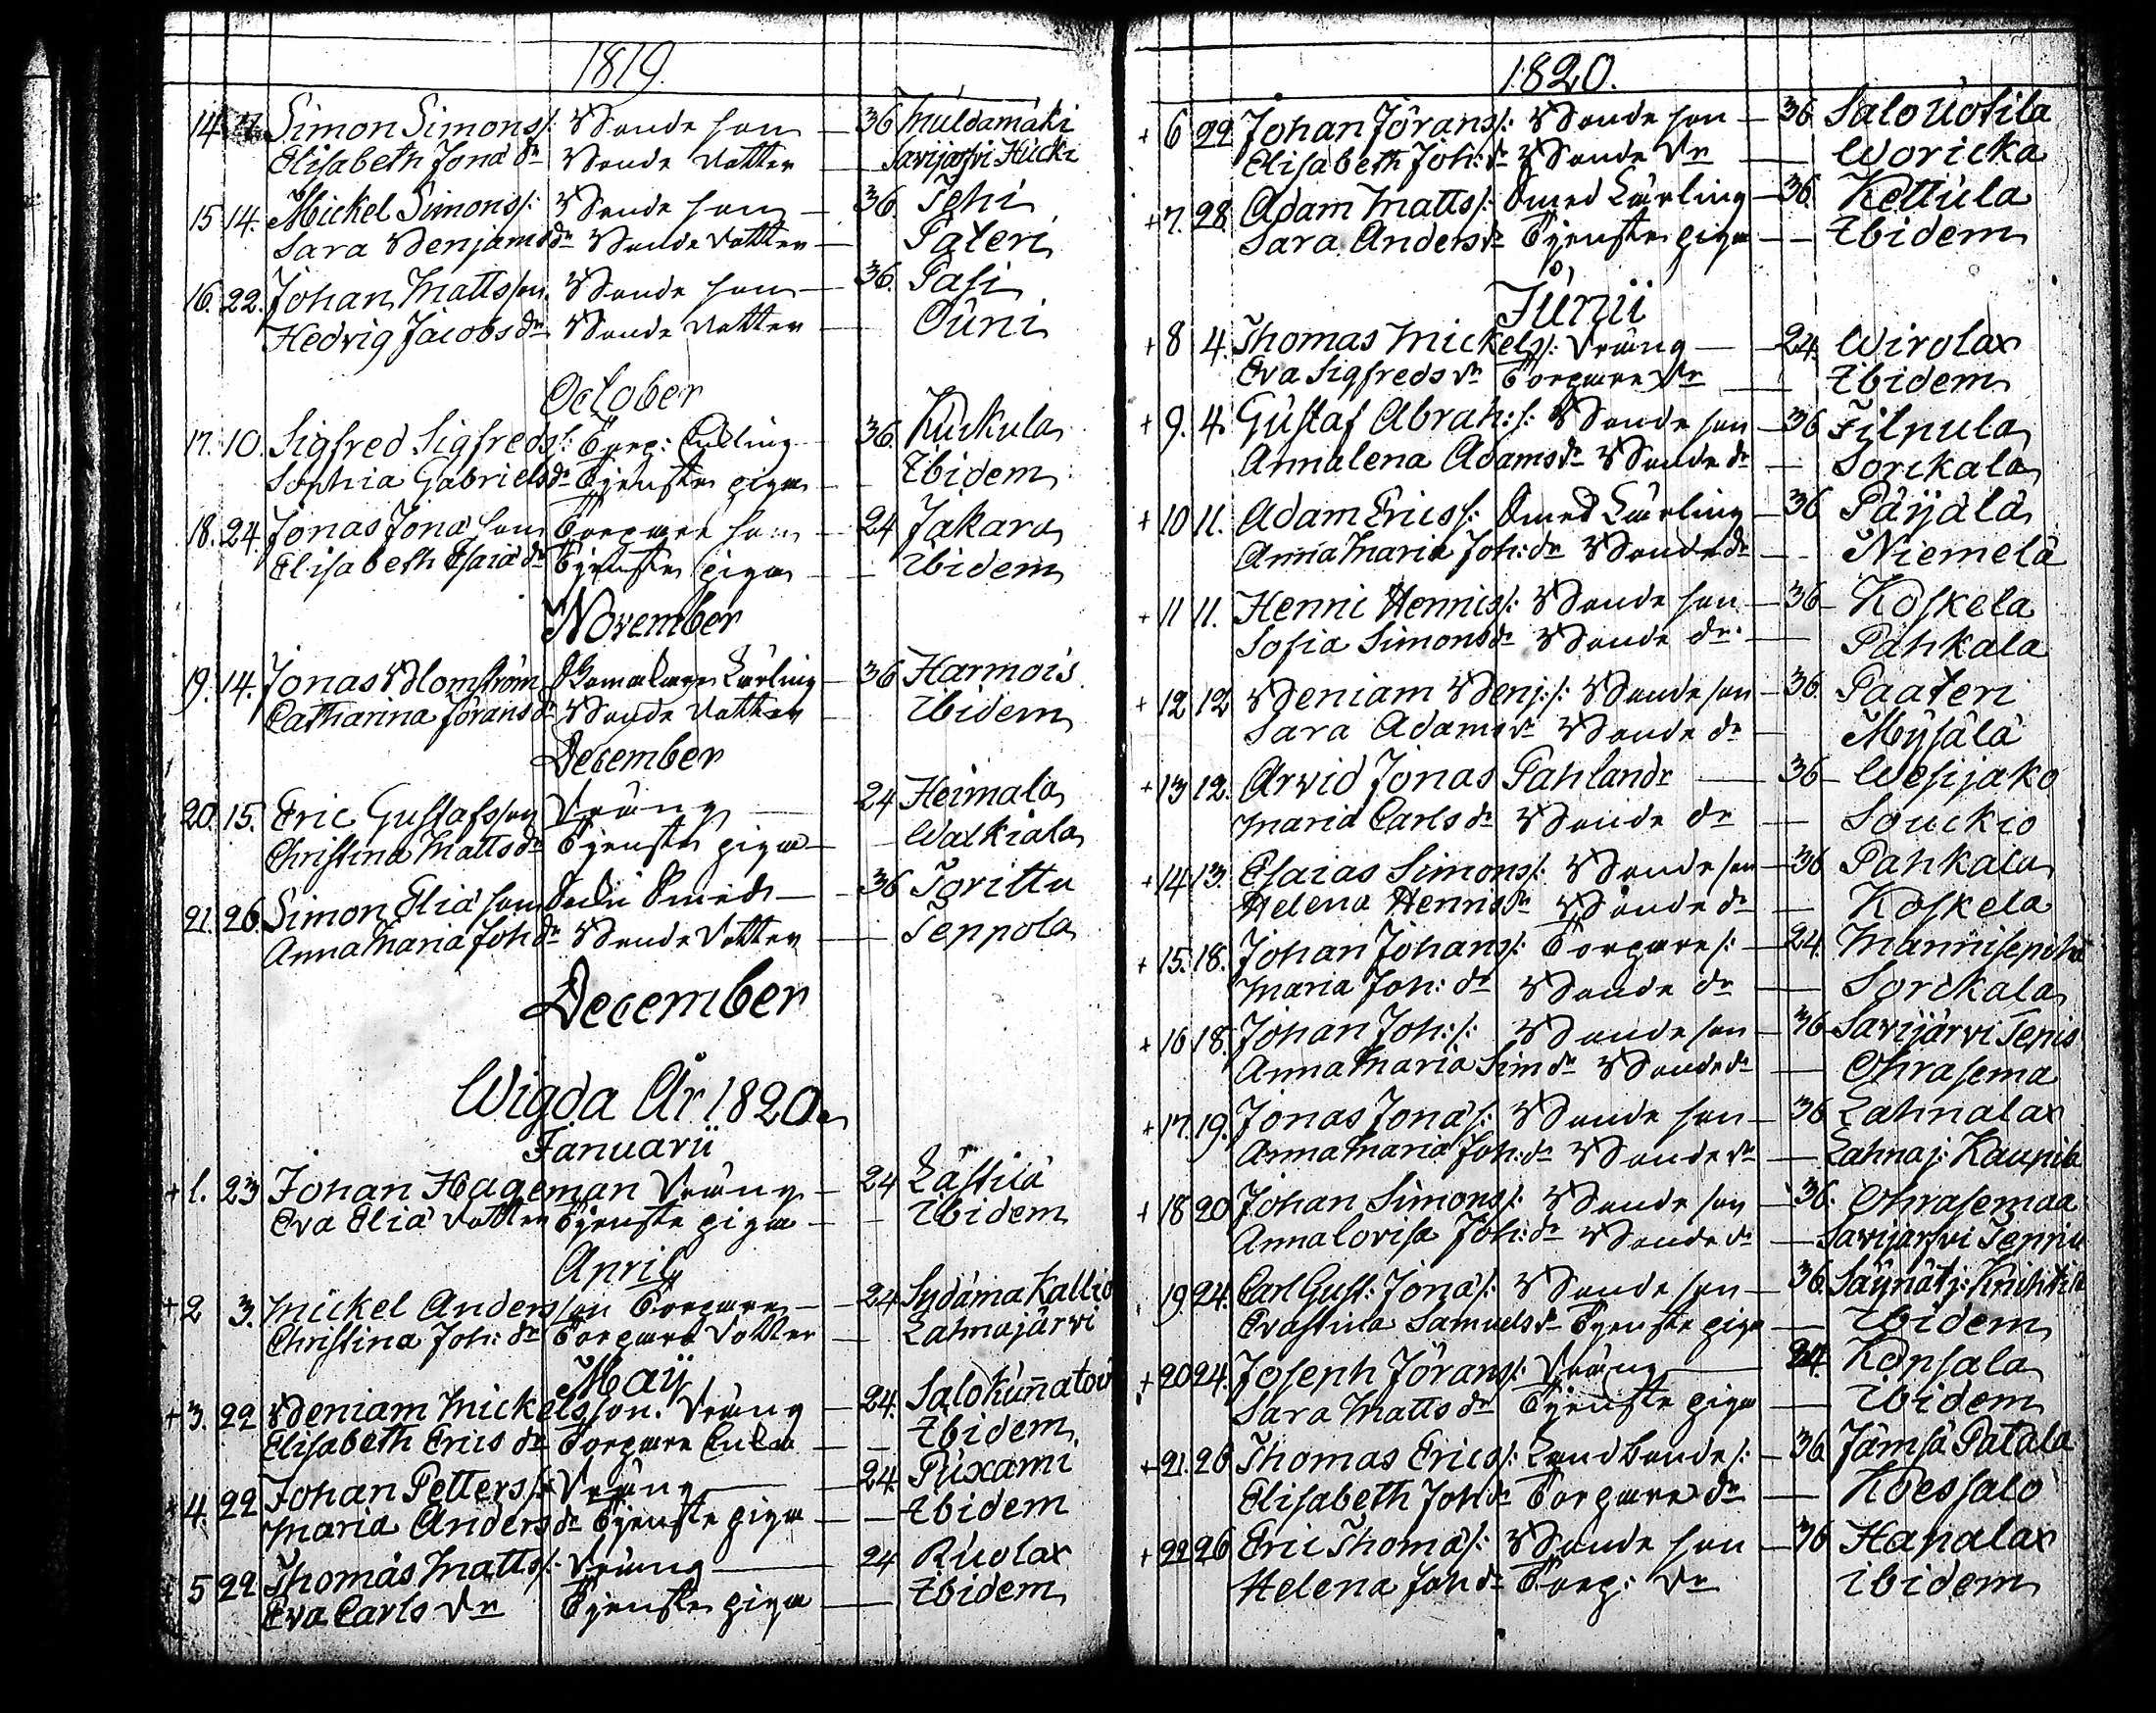 1819.
14. Simon Simons/: Bonde son — 36 Muldamäki
Elisabeth Jona dr Bonde dotter — Savijärfvi Hucki
15 14. Mickel Simons/: Bonde son — 36 Tehi
Sara Benjamsdr Bonde dotter — Pateri
16. 22. Johan Mattsson Bonde son — 36. Pasi
Hedvig Jacobs dr Bonde dotter — Ouni
October
17. 10. Sigfred Sigfreds/: Torp: Enkling — 36. Kurkula
Sophia Gabrielsdr Tjenste piga — Ibidem
18. 24. Jonas Jona son Torpare son — 24 Jakara
Elisabeth Esaiä dr Tjenste piga — Ibidem
November
19. 14. Jonas Blomström Skomakare Lärling — 36 Harmois
Catharina Jörans dr Bonde dotter — Ibidem
December
20. 15. Eric Gustafsson Dräng — 24 Heimala
Christina Matts dr Tjenste piga — Walkiala
21. 26. Simon Eliä son Smed — 36 Torittu
Anna Maria Joh dr Bonde dotter — Teppola
December
Wigda År 1820.
Januarii
+ 1. 23 Johan Hageman Dräng — 24 Lästilä
Eva Eliä dotter Tjenste piga — Ibidem
April
+ 2 3. Mickel Andersson Torpare — 24 Sydäma Kallio
Christina Joh: dr Torpare dotter — Lahnajärvi
Maij
+ 3. 22 Beniam Mickelsson. Dräng — 24. Salokunnatov
Elisabeth Erics dr Torpare Enka — Ibidem
+ 4. 22 Johan Petters/: Dräng — 24. Puxami
Maria Anders dr Tjenste piga — Ibidem
+ 5 22 Thomas Matts/: Dräng — 24 Ruolax
Eva Carls dr Tjenste piga — Ibidem
1820.
+ 6 22 Johan Jörans/: Bonde son — 36 Salo Uotila
Elisabeth Joh: dr Bonde dr — Woricka
+ 7. 28. Adam Matts/: Smed Lärling — 36. Kettula
Sara Anders dr Tjenste piga — Ibidem
Junii
+ 8 4. Thomas Mickels/: Dräng — 24. Wirolax
Eva Sigfreds dr Torpare dr — Ibidem
+ 9. 4. Gustaf Abrah:/: Bonde son — 36 Filpula
Annalena Adams dr Bonde dr — Sorckala
+ 10 11. Adam Erics/: Smed Lärling — 36 Päijälä
Anna Maria Joh: dr Bonde dr — Niemelä
+ 11 11. Henric Henrics/: Bonde son — 36 Koskela
Sofia Simons dr Bonde dr — Pahkala
+ 12 12 Beniam Benj:/: Bonde son — 36. Paateri
Sara Adams dr Bonde dr — Mysälä
+ 13 12. Arvid Jonas Pahlandr — 36 Wesijako
Maria Carls dr Bonde dr — Souckio
+ 14 13. Esaias Simons/: Bonde son — 36 Pahkala
Helena Henrics dr Bonde dr — Koskela
+ 15. 18. Johan Johans/: Torpare/: — 24.
Maria Joh: dr Bonde dr — Sorckala
+ 16 18. Johan Joh:/: Bonde son — 36 Savijärvi Tepis
Anna Maria Sim dr Bonde dr — Ohrasema
+ 17. 19. Jonas Jonä/: Bonde son — 36 Lahnalax
Anna Maria Joh: dr Bonde dr — Lahnaj: Kaupila
+ 18 20 Johan Simons/: Bonde son — 36. Ohrasemaa
Annalovisa Joh: dr Bonde dr — Savijarfvi Teppiu
19 24. Carl Gust: Jonä/: Bonde son — 36. Säynätj:
Evastina Samuels dr Tjenste piga — Ibidem
+ 20 24. Joseph Jörans/: Dräng — 24. Konsala
Sara Matts dr Tjenste piga — Ibidem
+ 21. 26 Thomas Erics/: Land bonde/: — 36 Jämsä Patala
Elisabeth Joh dr Torpare dr — Koessalo
+ 22 26 Eric Thomä/: Bonde son — 36 Hapalax
Helena Joh dr Torp: dr ibidem